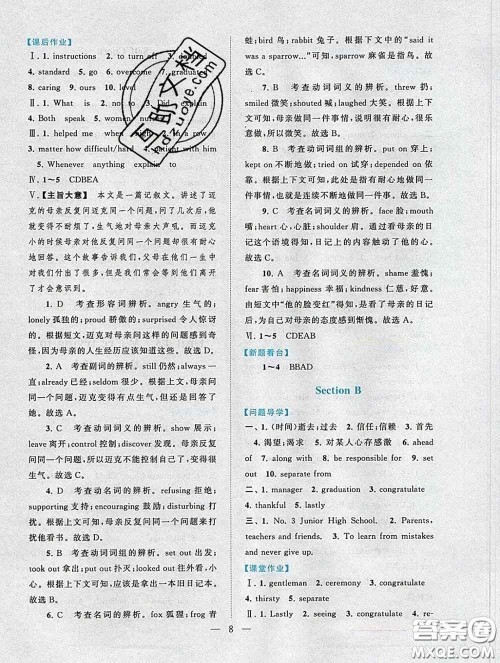 【课后作业】
Ⅰ. 1. instructions 2. to turn off 3.
4. standard 5. go 6. overcome 7. graduated
8. caring 9. ours 10. level
Ⅱ. 1. What is 2. not to 3. Did explain
4. Both speak 5. women
Ⅲ. 1. helped me when 2. in a row
3. matter how difficult/hard 4. patient with him
5. Whenever anything explain to
Ⅳ. 1~5 CDBEA
Ⅴ.【主旨大意】 本文是一篇记叙文。讲述了迈
克的母亲反复问迈克同一个问题，问了几次后，他
就变得不耐烦了，生气地对母亲大声吼。而迈克小
时候的母亲对他反复问同一个问题却很有耐心
地回答。这个故事告诉我们，父母在他们一生中
对我们付出了很多，我们往往是在他们快要离开
了才会意识到。
1. D 考查形容词辨析。angry 生气的；
lonely 孤独的；proud 骄傲的；surprised 令人惊
讶的。根据短文，迈克对母亲问这样的问题
因为母亲的人生经历应该知道这是麻雀。故选 D。
2. A 考查副词的辨析。still 仍然；always 一
直；already 已经；seldom 很少。根据上文，母亲问
了两次，迈克变得不耐烦了，但母亲仍然没有生气，
继续问。故选 A。
3. C 考查动词词义的辨析。show 展示；
leave 离开；control 控制；discover 发现。母亲反复
问同一个问题，所以迈克不能控制自己了，才变
得生气了。故选 C。
4. D 考查动名词的辨析。refusing 拒绝；
supporting 支持；encouraging 鼓励；disturbing 打
扰。根据上文可知，母亲反复问同一个问题来打扰
他看书。故选 D。
5. B 考查动词词组的辨析。set out 出发；
took out 拿出；put out 扑灭；looked out 往外看，小
心。根据上下文可知，应该是拿出一本旧日记本。
故选 B。
6. C 考查动物名词的辨析。fox 狐狸；frog 青
蛙；bird 鸟；rabbit 兔子。根据下文中的“said it
was a sparrow...”可知，sparrow 麻雀是指鸟。故
选 C。
7. A 考查动词词义的辨析。threw 扔；
smiled 微笑；shouted 喊；laughed 大笑。根据上下
文可知，母亲在做同一件事情，没有表现出生气，很
乐意，所以微笑。故选 B。
8. B 考查动词词组的辨析。put on 穿上；
kept on 不断地做；tried on 试穿；depended on 依
靠。根据上下文可知，母亲在不断地做同一件事
情，也就是连续不断地做同一件事。故选 B。
9. C 考查身体名词的辨析。face 脸；mouth
嘴；heart 心，心脏；shoulder 肩膀。通过看母亲的
日记，迈克被日记上记述的内容触动了他的内心。
故选 C。
10. A 考查名词词义的辨析。shame 羞愧；
fear 害怕；happiness 幸福；kindness 仁慈，好意。
由短文中“他的脸变红”可得知，当他看了母亲的日记
后，为自己对母亲的态度感到惭愧。故选 A。
Ⅵ. 1~5 CDEAB
【新题看台】
1~4 BBAD
Section B
【问题导学】
一、1. (时间)逝去；过去 2. 信任；信赖 3. 首先
4. 渴望；渴求 5. 对某人心存感激 6. ahead
of 7. along with 8. be responsible for 9. set
out 10. separate from
二、1. manager 2. graduation 3. congratulate
4. thankful 5. lastly
三、1. No. 3 Junior High School. 2. Parents,
teachers and friends. 3. To learn from mistakes
and never give up.
【课堂作业】
Ⅰ. 1. gentleman 2. ceremony 3. congratulate
4. thirsty 5. separate
Ⅱ. 1. Lastly 2. seeing 3. others 4. are 5. re-
8
百助文档
baizuoye.com
答案圈
MXQE.COM